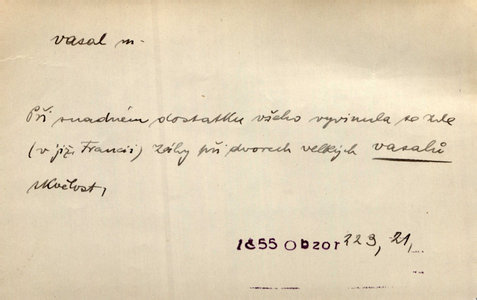 vasal m.
Při snadném dostatku všeho vyvinula se zde
(v již. Francii) záhy při dvorech velkých vasalů
skvělost,
1855 Obzor 223, 21,